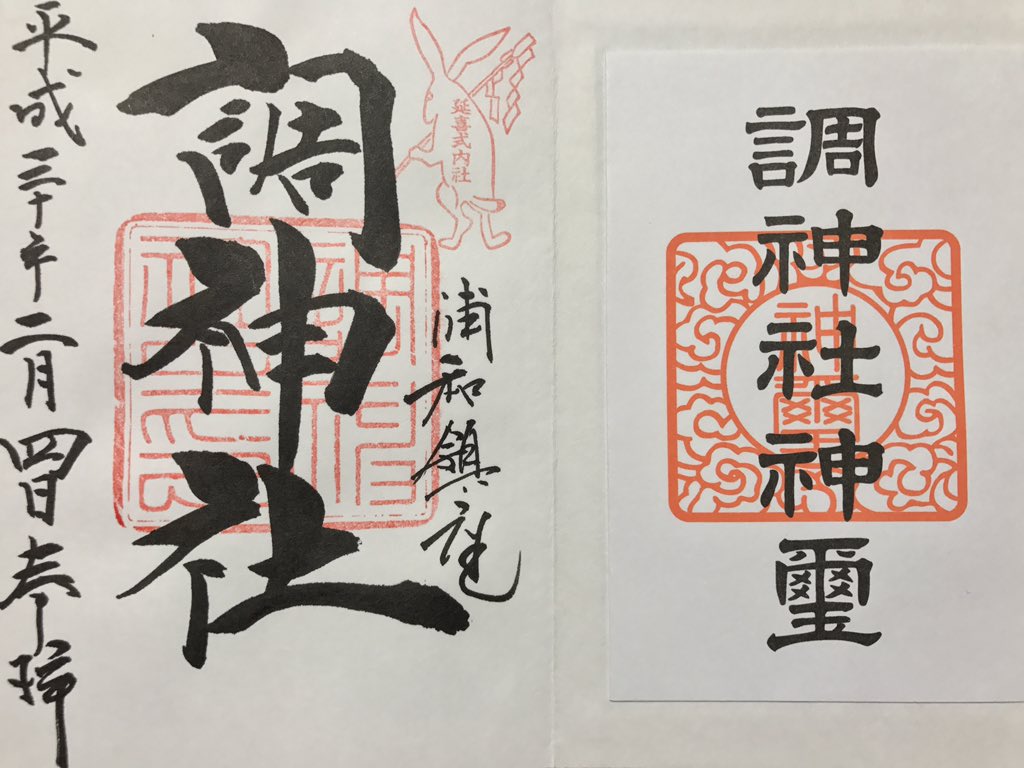 調神社神璽
神璽
延喜式内社
浦和鎮座
調神社
平成三十年二月四日奉拝